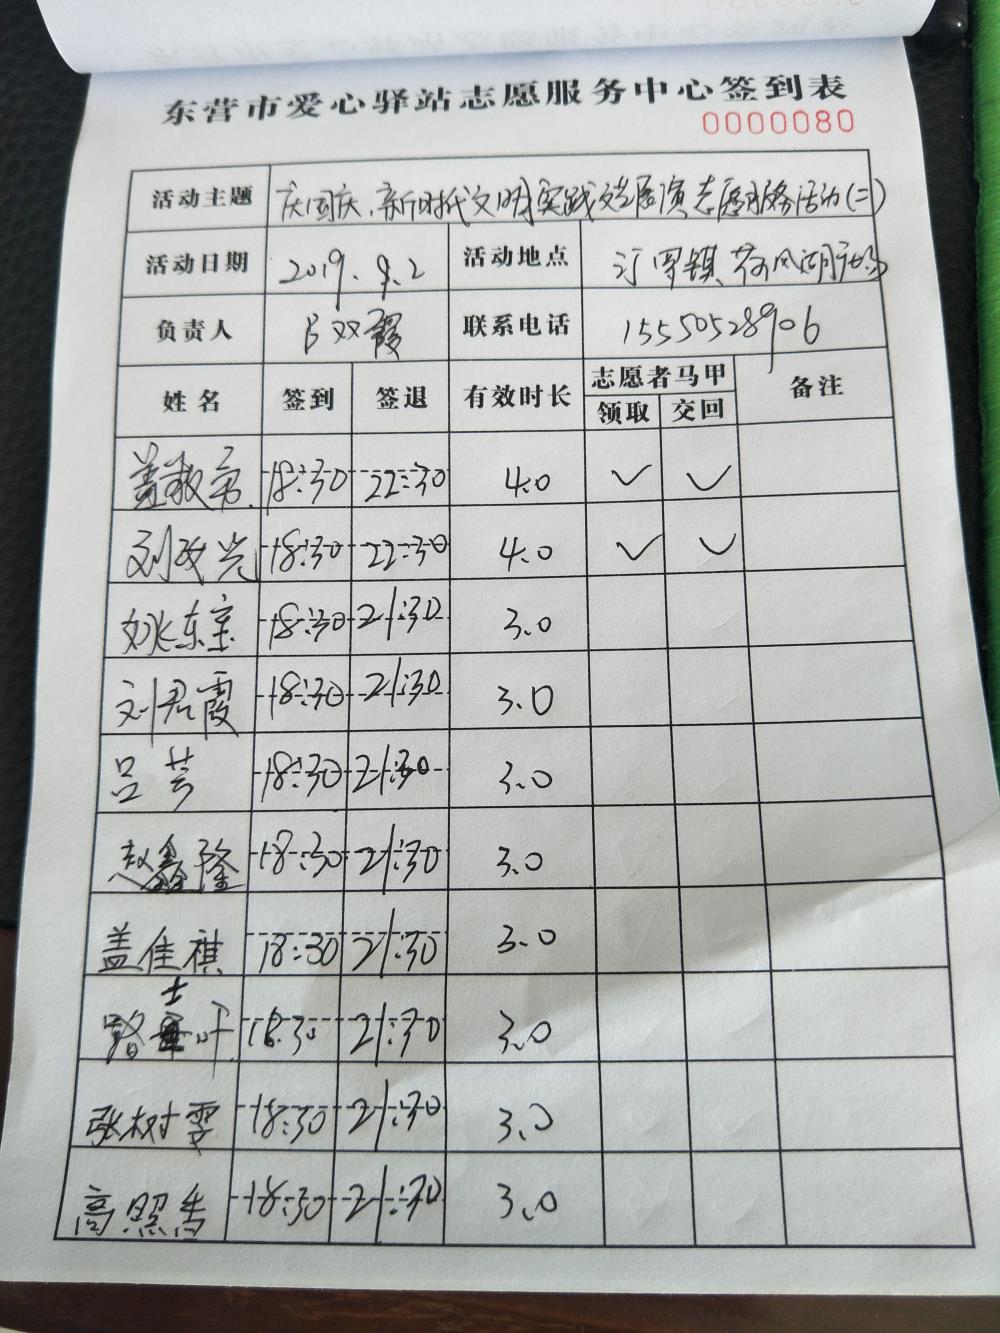 东营市爱心驿站志愿服务中心签到表
0000080
活动主题 庆国庆、新时代文明实践文艺展演志愿服务活动(二)
活动日期 2019.9.2 活动地点 汀罗镇荷风湖广场
负责人 吕双霞 联系电话 15550528906
姓名 签到 签退 有效时长 志愿者马甲 备注
领取 交回
盖 18:30 22:30 4.0 ✓ ✓
刘 光 18:30 22:30 4.0 ✓ ✓
姚东宝 18:30 21:30 3.0
刘君霞 18:30 21:30 3.0
吕芸 18:30 21:30 3.0
赵鑫隆 18:30 21:30 3.0
盖佳祺 18:30 21:30 3.0
路士叶 18:30 21:30 3.0
张树雯 18:30 21:30 3.0
高照香 18:30 21:30 3.0